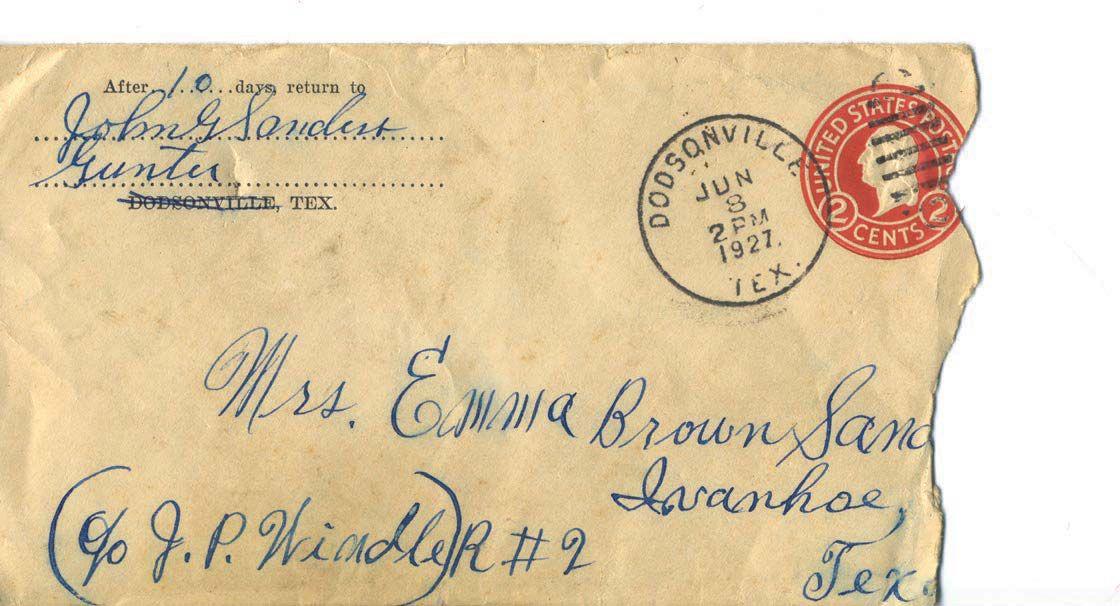 After..10...days, return to
John G Sanders
Gunter
DODSONVILLE, TEX.
DODSONVILLE
JUN
8
2 PM
1927.
TEX.
UNITED STATES POST
2 CENTS 2
Mrs. Emma Brown Sand
Ivanhoe,
(c/o J. P. Windle) R #2
Tex.